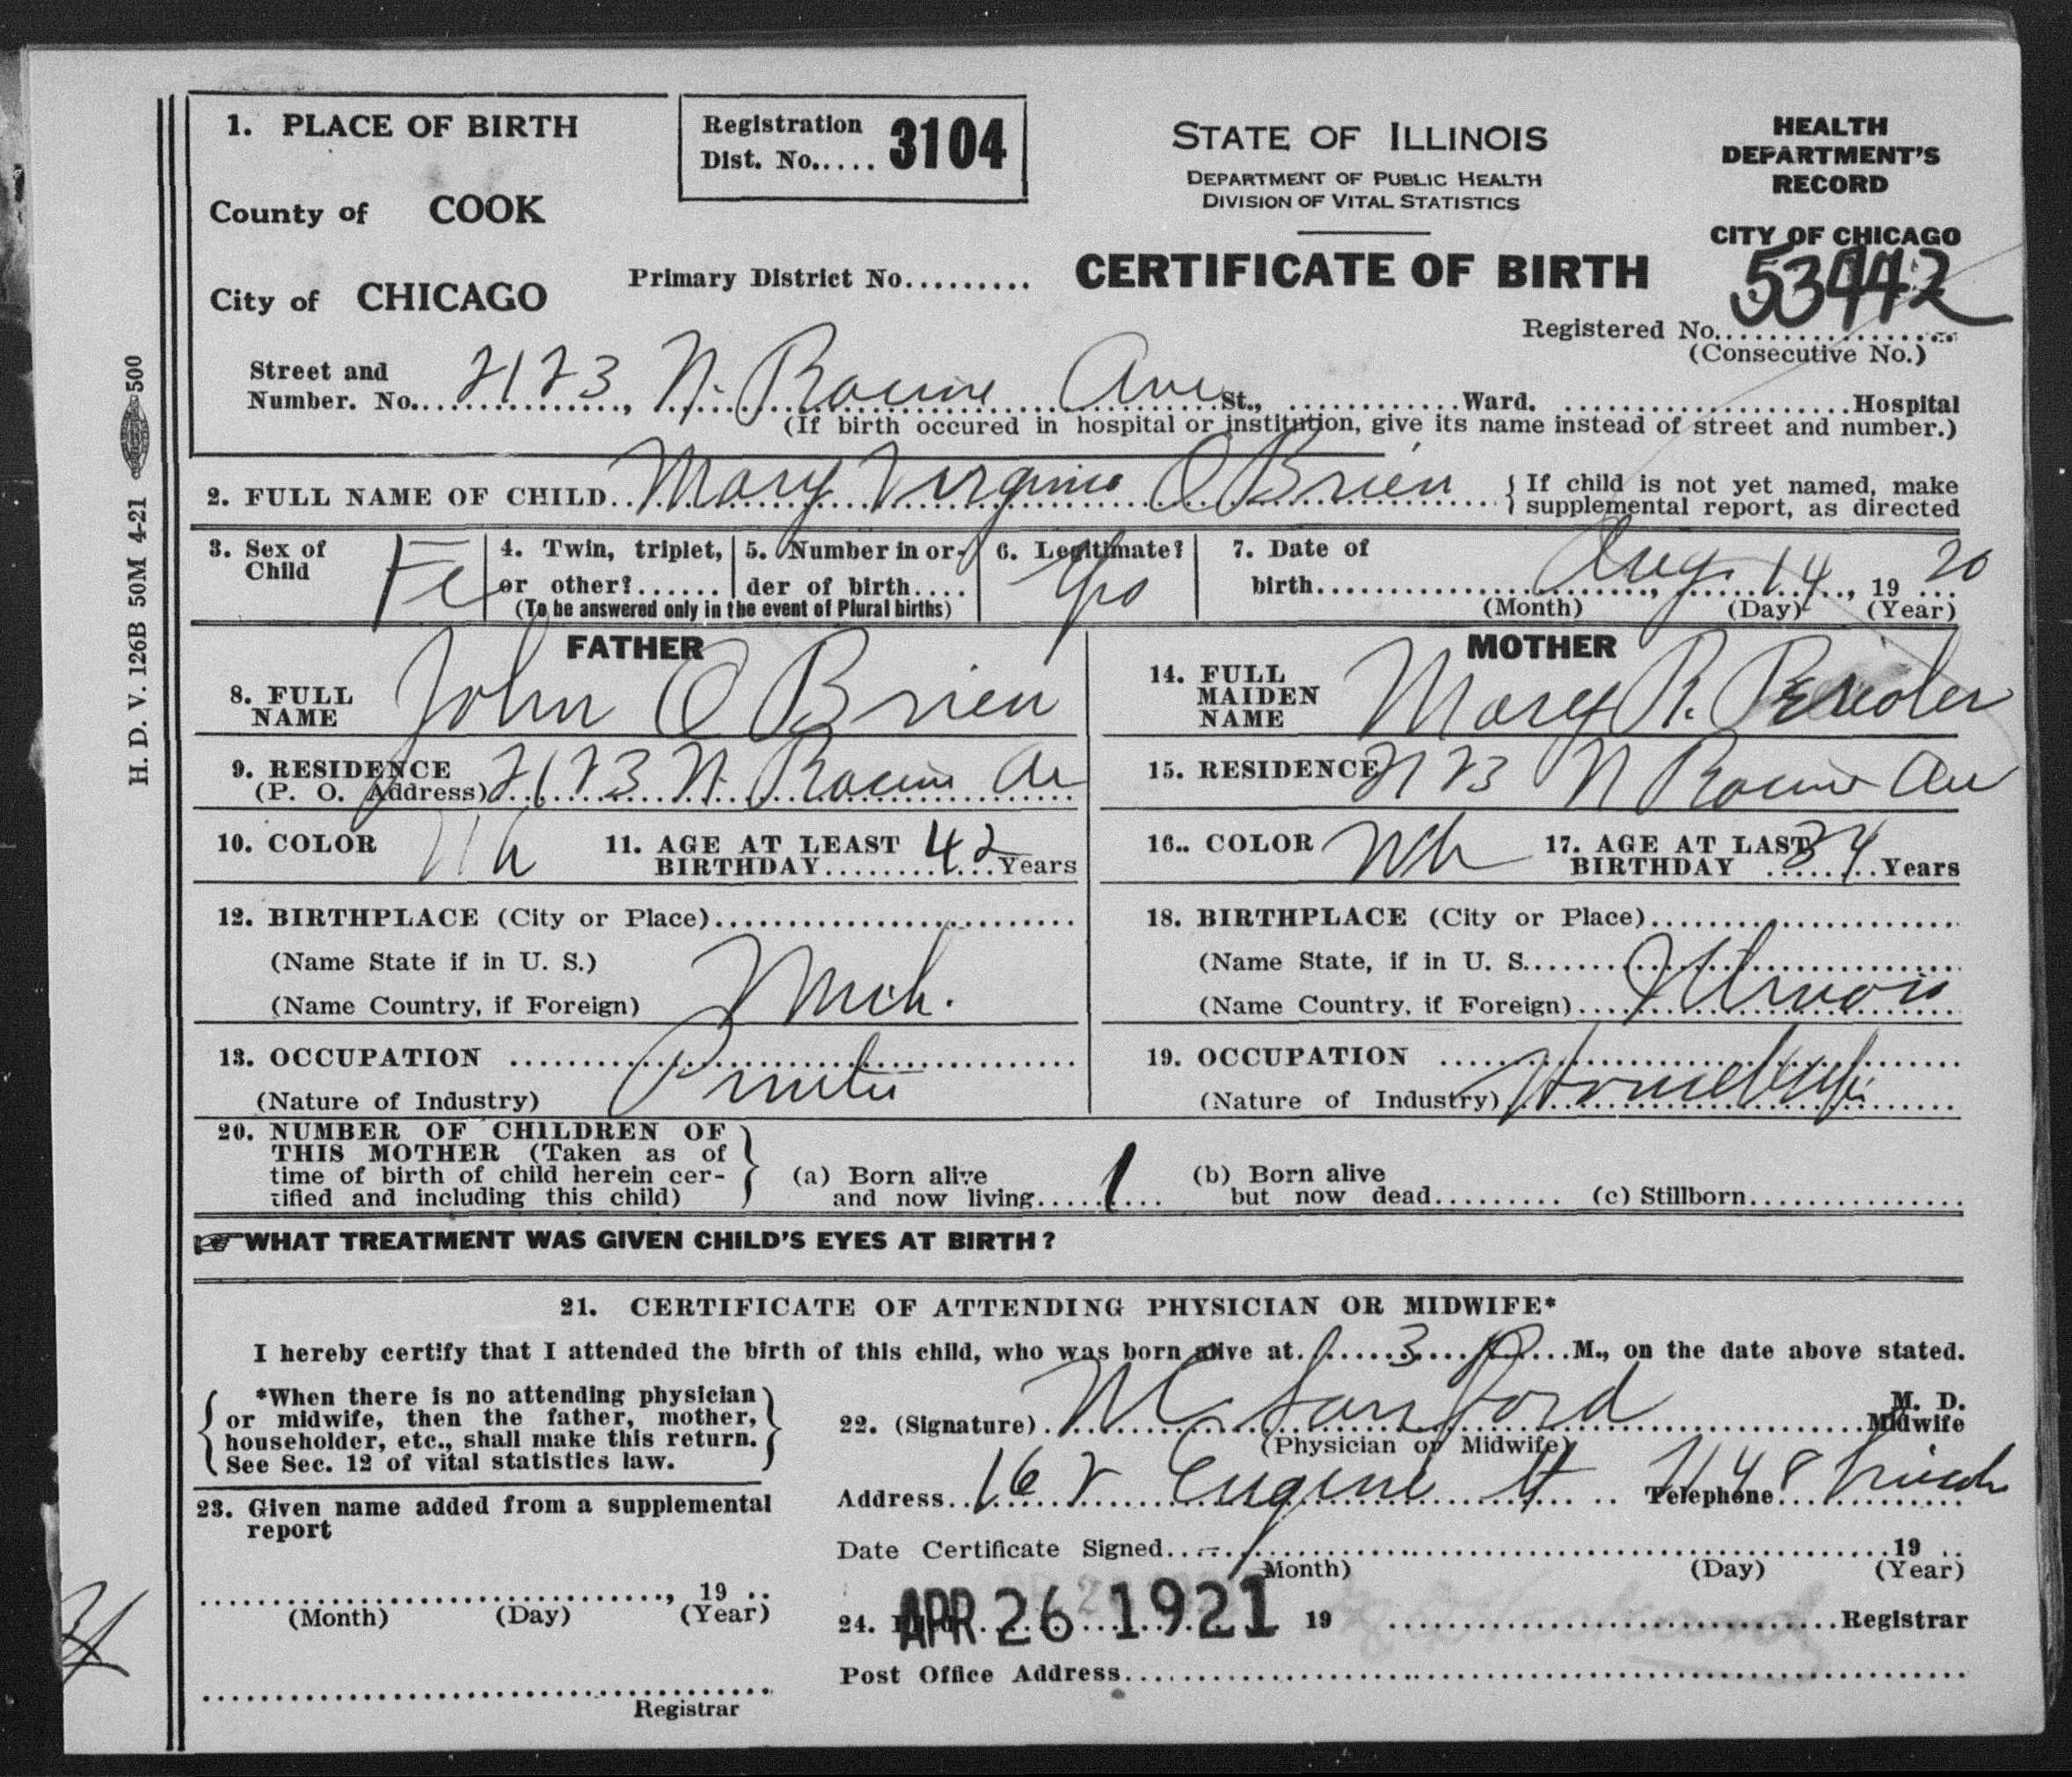 1. PLACE OF BIRTH
Registration
Dist. No..... 3104
County of COOK
City of CHICAGO
Primary District No.........
STATE OF ILLINOIS
DEPARTMENT OF PUBLIC HEALTH
DIVISION OF VITAL STATISTICS
CERTIFICATE OF BIRTH
HEALTH
DEPARTMENT'S
RECORD
CITY OF CHICAGO
53442
Registered No.
(Consecutive No.)
Street and
Number. No. 2123, N. Racine Ave St., Ward. Hospital
(If birth occured in hospital or institution, give its name instead of street and number.)
2. FULL NAME OF CHILD Mary Virginia O Brien { If child is not yet named, make
supplemental report, as directed
3. Sex of
Child Fe
4. Twin, triplet,
or other?.......
5. Number in or-
der of birth....
(To be answered only in the event of Plural births)
6. Legitimate? Yes
7. Date of
birth Aug. 14, 19 20
(Month) (Day) (Year)
FATHER
8. FULL
NAME John O Brien
9. RESIDENCE
(P. O. Address) 2123 N. Racine Av
10. COLOR Wh
11. AGE AT LEAST
BIRTHDAY 42 Years
12. BIRTHPLACE (City or Place)
(Name State if in U. S.)
(Name Country, if Foreign) Mich.
13. OCCUPATION
(Nature of Industry) Printer
MOTHER
14. FULL
MAIDEN
NAME Mary R.
15. RESIDENCE 2123 N Racine Av
16.. COLOR Wh
17. AGE AT LAST
BIRTHDAY 34 Years
18. BIRTHPLACE (City or Place)
(Name State, if in U. S.
(Name Country, if Foreign) Illinois
19. OCCUPATION
(Nature of Industry) Housewife
20. NUMBER OF CHILDREN OF
THIS MOTHER (Taken as of
time of birth of child herein cer-
tified and including this child)
(a) Born alive
and now living 1
(b) Born alive
but now dead.........
(c) Stillborn
WHAT TREATMENT WAS GIVEN CHILD'S EYES AT BIRTH?
21. CERTIFICATE OF ATTENDING PHYSICIAN OR MIDWIFE*
I hereby certify that I attended the birth of this child, who was born alive at 3 P M., on the date above stated.
*When there is no attending physician
or midwife, then the father, mother,
householder, etc., shall make this return.
See Sec. 12 of vital statistics law.
22. (Signature) Sanford M. D.
Midwife
(Physician or Midwife)
Address Eugene St Telephone
Date Certificate Signed 19 ..
(Month) (Day) (Year)
23. Given name added from a supplemental
report
, 19 ..
(Month) (Day) (Year)
Registrar
24. APR 26 1921 19 Registrar
Post Office Address
H. D. V. 126B 50M 4-21 500